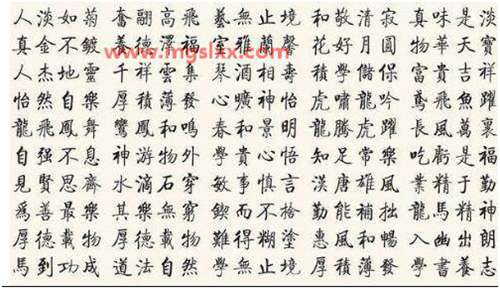 人淡如菊 奮翮高飛 藝無止境 和敬清寂 真味是淡
真金不鍍 養德 室雅蘭馨 花好月圓 物華天寶
www.mgslxx.com
人杰地靈 千祥雲集 琴 積學儲 富貴吉祥
怡然自樂 厚積薄發 心曠神怡 虎嘯龍吟 鳶飛魚躍
龍飛鳳舞 鸞鳳和鳴 春和景明 龍騰虎躍 長風萬裏
自强不息 神游物外 學貴心悟 知足常樂 吃虧是福
見賢思齊 水滴石穿 敏事慎言 漢唐雄風 業精于勤
爲善最樂 其樂無窮 鍥而不捨 勤能補拙 龍馬精神
厚德載物 厚德載物 難得糊塗 惠風和暢 入幽出朗
馬到功成 道法自然 學無止境 厚積薄發 學書養志